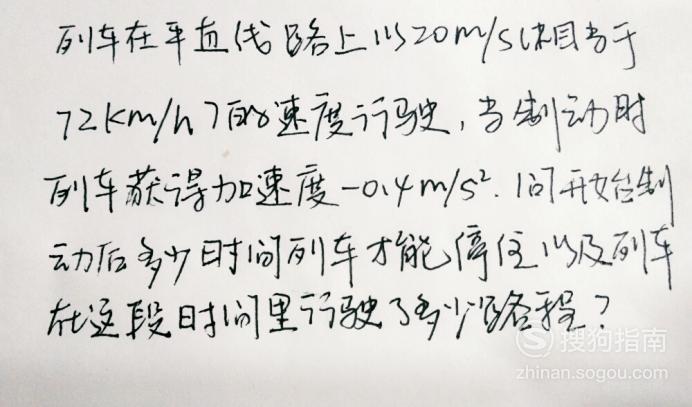 列车在平直线路上以20m/s(相当于
72km/h)的速度行驶,当制动时
列车获得加速度-0.4m/s².问开始制
动后多少时间列车才能停住以及列车
在这段时间里行驶了多少路程?
搜狗指南
zhinan.sogou.com